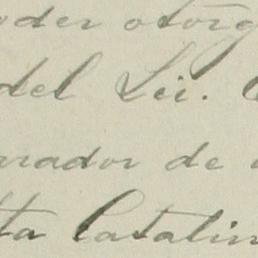 oder otorg
del Lic.
rador de
ta Catalin